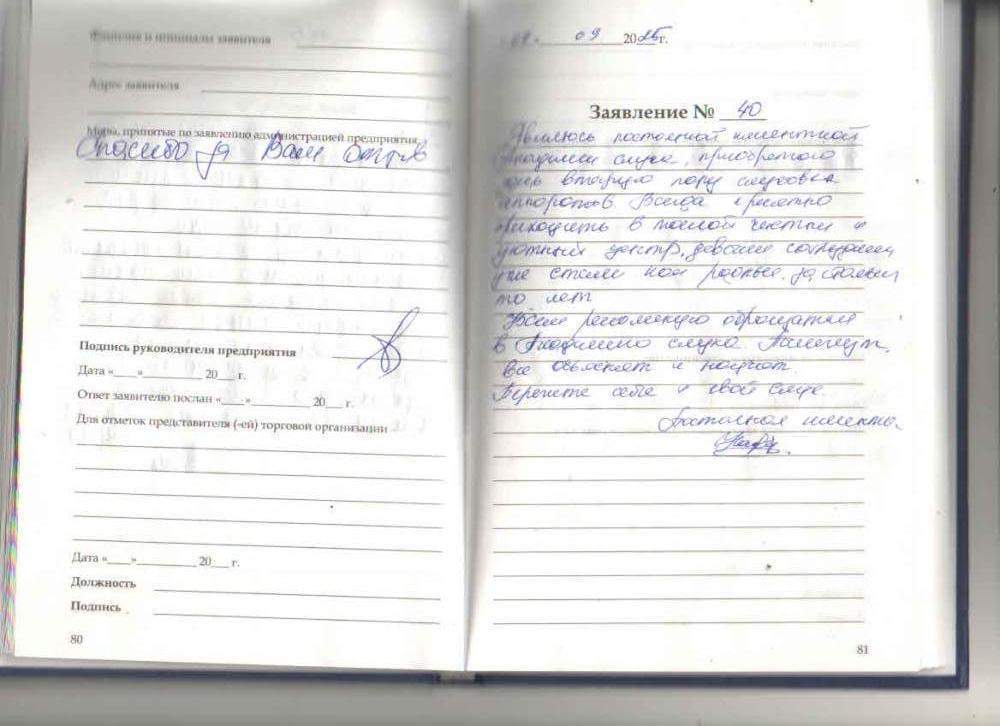 Фамилия и инициалы заявителя
Адрес заявителя
Меры, принятые по заявлению администрацией предприятия
Спасибо за Ваш отзыв
Подпись руководителя предприятия
Дата «___»__________ 20___ г.
Ответ заявителю послан «___»__________ 20___ г.
Для отметок представителя (-ей) торговой организации
Дата «___»__________ 20___ г.
Должность
Подпись
80
09 2025г.
Заявление № 40
Являюсь постоянной клиенткой
Академии слуха, приобретаю
вторую пару слуховых
аппаратов. Всегда приятно
приходить в милый чистый и
уютный центр, девочки сотрудники
уже стали как родные, за столько
то лет
Всем рекомендую обращаться
в Академию слуха. Помогут,
все объяснят и научат.
Берегите себя и свой слух.
Постоянная клиентка.
81